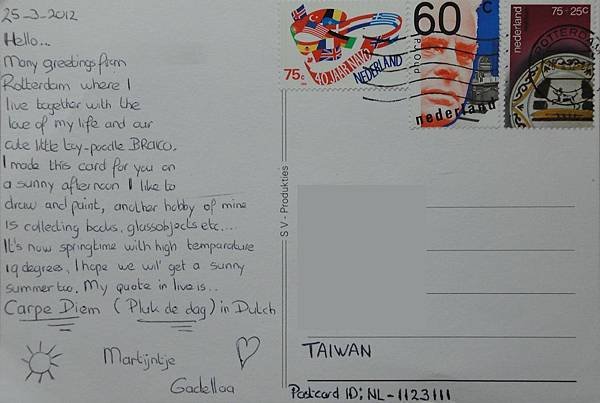 25-3-2012
Hello...
Many greetings from
Rotterdam where I
live together with the
love of my life and our
cute little toy-poodle BRACO.
I made this card for you on
a sunny afternoon I like to
draw and paint, another hobby of mine
is collecting books, glassobjects etc....
It's now springtime with high temparature
19 degrees, I hope we will get a sunny
summer too. My quote in live is..
Carpe Diem (Pluk de dag) in Dutch
Martijntje
Gadellaa
75c
40 JAAR NAVO
NEDERLAND
60c
nederland
nederland
75+25c
ROTTERDAM
S V - Produkties
TAIWAN
Postcard ID: NL-1123111